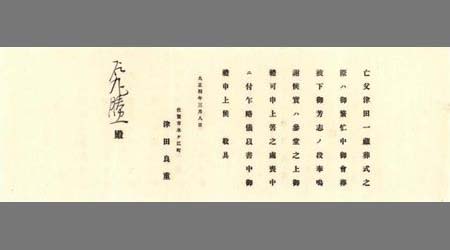 亡父津田一蔵葬式之
際ハ御繁忙中御會葬
被下御芳志ノ段奉鳴
謝候實ハ參堂之上御
禮可申上筈之處喪中
ニ付乍略儀以書中御
禮申上候 敬具
大正四年三月八日
佐賀市水ケ江町
津田良重
殿